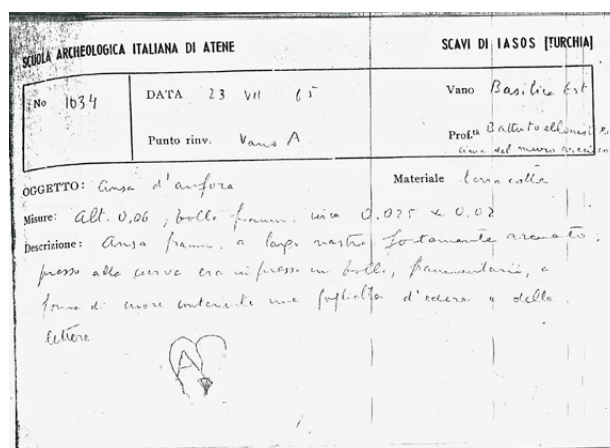 SCUOLA ARCHEOLOGICA ITALIANA DI ATENE
SCAVI DI IASOS [TURCHIA]
No 1634
DATA 23 VII 65
Vano Basilica Est
Punto rinv. Vano A
Prof.tà Battuto
cima del muro
OGGETTO: Ansa d'anfora
Materiale terracotta
Misure: Alt. 0,06, bollo framm. circa 0.025 x 0.02
Descrizione: Ansa framm. a largo nastro fortemente arcuato;
presso alla curva era impresso un bollo, frammentario, a
forma di cuore contenente una foglietta d'edera e della
lettere
A